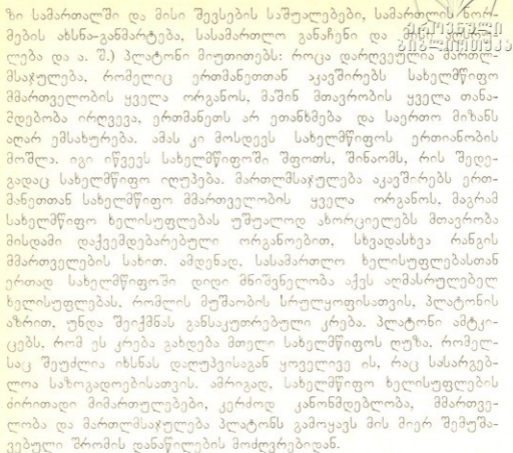 ზი სამართალში და მისი შევსების საშუალებები, სამართლის ნორ-
მების ახსნა-განმარტება, სასამართლო განაჩენი და
ლება და ა. შ.) პლატონი მიუთითებს: როცა დარღვეულია მართლ-
მსაჯულება, რომელიც ერთმანეთთან აკავშირებს სახელმწიფო
მმართველობის ყველა ორგანოს, მაშინ მთავრობის ყველა თანა-
მდებობა ირღვევა, ერთმანეთს არ ეთანხმება და საერთო მიზანს
აღარ ემსახურება. ამას კი მოსდევს სახელმწიფოს ერთიანობის
მოშლა. იგი იწვევს სახელმწიფოში შფოთს, შინაომს, რის შედე-
გადაც სახელმწიფო იღუპება. მართლმსაჯულება აკავშირებს ერთ-
მანეთთან სახელმწიფო მმართველობის ყველა ორგანოს, მაგრამ
სახელმწიფო ხელისუფლებას უშუალოდ ახორციელებს მთავრობა
მისდამი დაქვემდებარებული ორგანოებით, სხვადასხვა რანგის
მმართველების სახით. ამდენად, სასამართლო ხელისუფლებასთან
ერთად სახელმწიფოში დიდი მნიშვნელობა აქვს აღმასრულებელ
ხელისუფლებას, რომლის მუშაობის სრულყოფისათვის, პლატონის
აზრით, უნდა შეიქმნას განსაკუთრებული კრება. პლატონი ამტკი-
ცებს, რომ ეს კრება გახდება მთელი სახელმწიფოს ღუზა, რომელ-
საც შეუძლია იხსნას დაღუპვისაგან ყოველივე ის, რაც სასარგებ-
ლოა საზოგადოებისათვის. ამრიგად, სახელმწიფო ხელისუფლების
ძირითადი მიმართულებები, კერძოდ კანონმდებლობა, მმართვე-
ლობა და მართლმსაჯულება პლატონს გამოყავს მის მიერ შემუშა-
ვებული შრომის დანაწილების მოძღვრებიდან.
ეროვნული
ბიბლიოთეკა